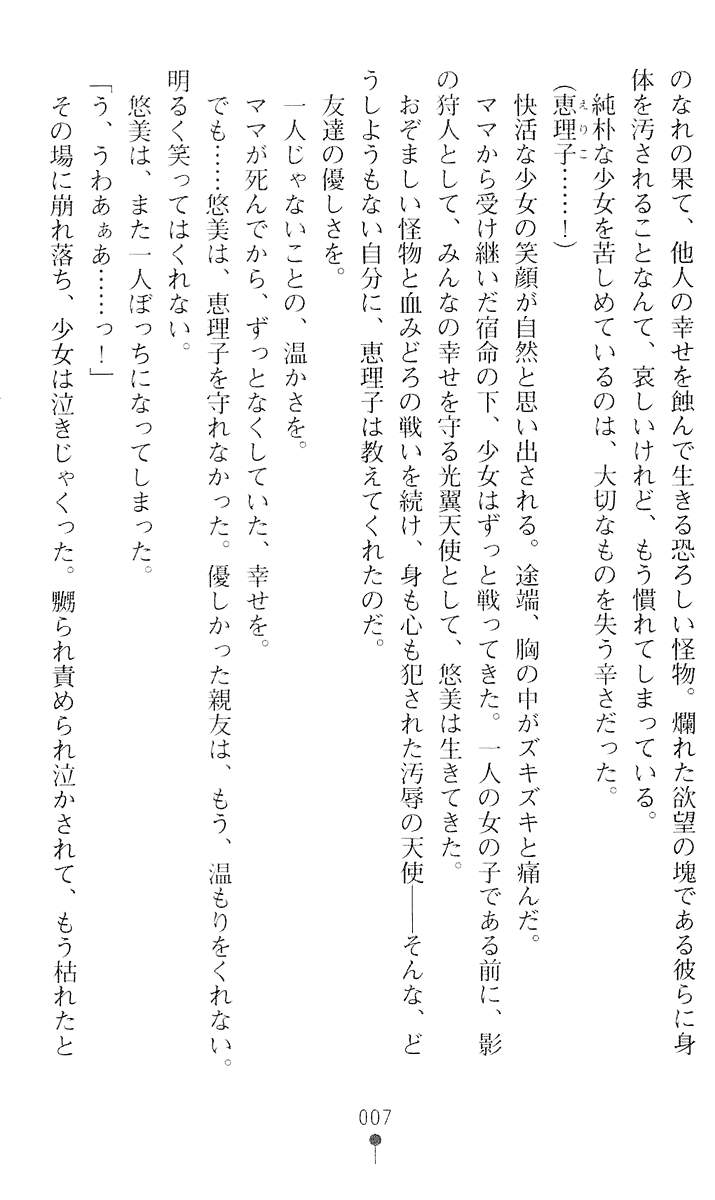 のなれの果て、他人の幸せを蝕んで生きる恐ろしい怪物。爛れた欲望の塊である彼らに身
体を汚されることなんて、哀しいけれど、もう慣れてしまっている。
純朴な少女を苦しめているのは、大切なものを失う辛さだった。
（恵理子……！）
えりこ
快活な少女の笑顔が自然と思い出される。途端、胸の中がズキズキと痛んだ。
ママから受け継いだ宿命の下、少女はずっと戦ってきた。一人の女の子である前に、影
の狩人として、みんなの幸せを守る光翼天使として、悠美は生きてきた。
おぞましい怪物と血みどろの戦いを続け、身も心も犯された汚辱の天使――そんな、ど
うしようもない自分に、恵理子は教えてくれたのだ。
友達の優しさを。
一人じゃないことの、温かさを。
ママが死んでから、ずっとなくしていた、幸せを。
でも……悠美は、恵理子を守れなかった。優しかった親友は、もう、温もりをくれない。
明るく笑ってはくれない。
悠美は、また一人ぼっちになってしまった。
「う、うわあぁあ……っ！」
その場に崩れ落ち、少女は泣きじゃくった。嬲られ責められ泣かされて、もう枯れたと
007